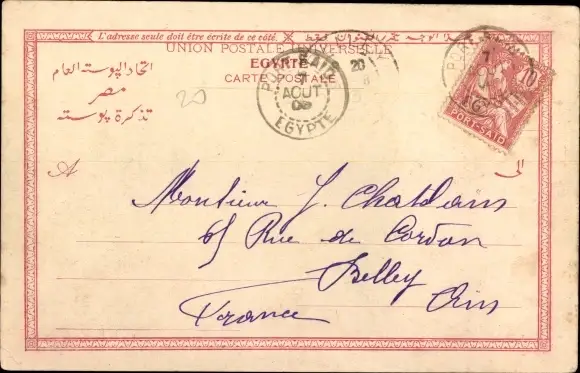 L'adresse seule doit être écrite de ce côté
UNION POSTALE UNIVERSELLE
EGYPTE
CARTE POSTALE
اتحاد البوسته العام
مصر
تذكرة بوسته
PORT-SAID
7
AOUT
EGYPTE
20
PORT-SAID
7
EGYPTE
10
PORT-SAID
20
A
الى
Monsieur J. Chatdains
65 Rue de Cordon
Belley
Ain
France